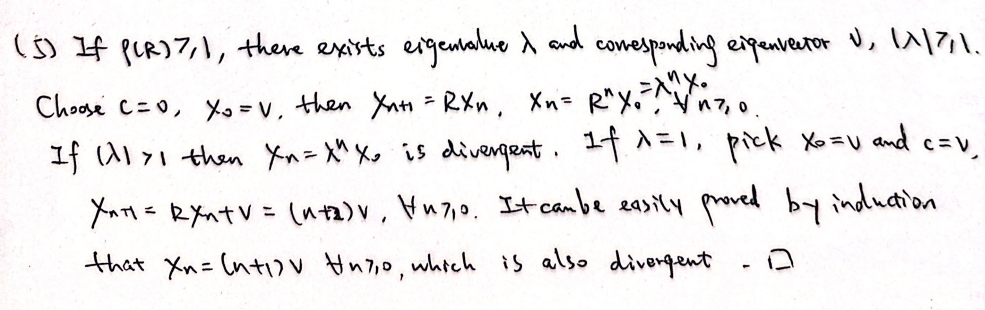 (5) If ρ(R)≥1, there exists eigenvalue λ and corresponding eigenvector v, |λ|≥1.
Choose c=0, x₀=v, then xₙ₊₁ = Rxₙ, xₙ = Rⁿx₀=λⁿx₀, ∀n≥0.
If |λ|>1 then xₙ=λⁿx₀ is divergent. If λ=1, pick x₀=v and c=v,
xₙ₊₁ = Rxₙ+v = (n+2)v, ∀n≥0. It can be easily proved by induction
that xₙ=(n+1)v ∀n≥0, which is also divergent. □